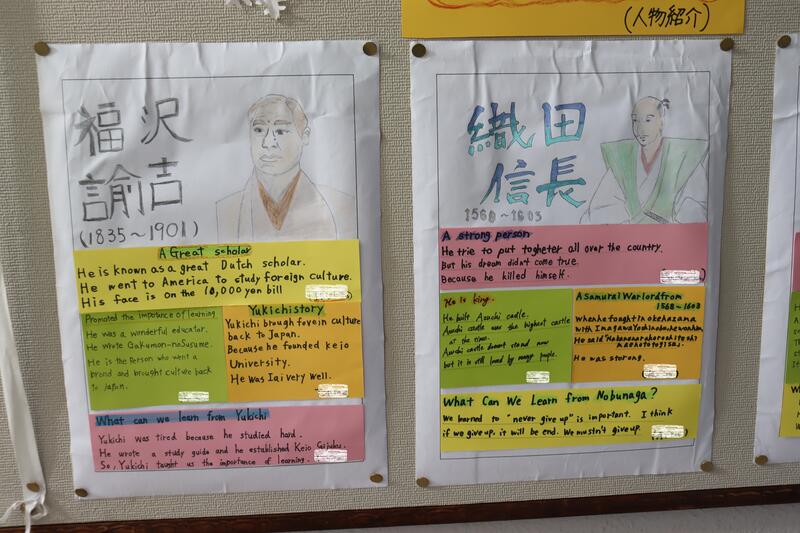 (人物紹介)
福沢
諭吉
(1835~1901)
A Great scholar
He is known as a great Dutch scholar.
He went to America to study foreign culture.
His face is on the 10,000 yen bill
Promoted the importance of learning
He was a wonderful educator.
He wrote Gakumon-nosusume.
He is the person who went a
broad and brought culture back
to Japan.
Yukichistory
Yukichi brough fovein culture
back to Japan.
Because he founded keio
University.
He was very well.
What can we learn from Yukichi
Yukichi was tired because he studied hard.
He wrote a study guide and he established Keio Gijuku.
So, Yukichi taught us the importance of learning.
織田
信長
1560~1603
A strong person
He trie to put togheter all over the country.
But his dream didn't come true.
Because he killed himself.
He is king.
He built Azuchi castle.
Azuchi castle was the highest castle
at the time.
Azuchi castle doesn't stand now
but it is still loved by many people.
A Samurai Warlord from
1568~1603
When he fought in okehazama
with Imagawa
He said
He was storong.
What Can We Learn from Nobunaga?
We learned to "never give up" is important. I think
if we give up, it will be end. We mustn't give up.